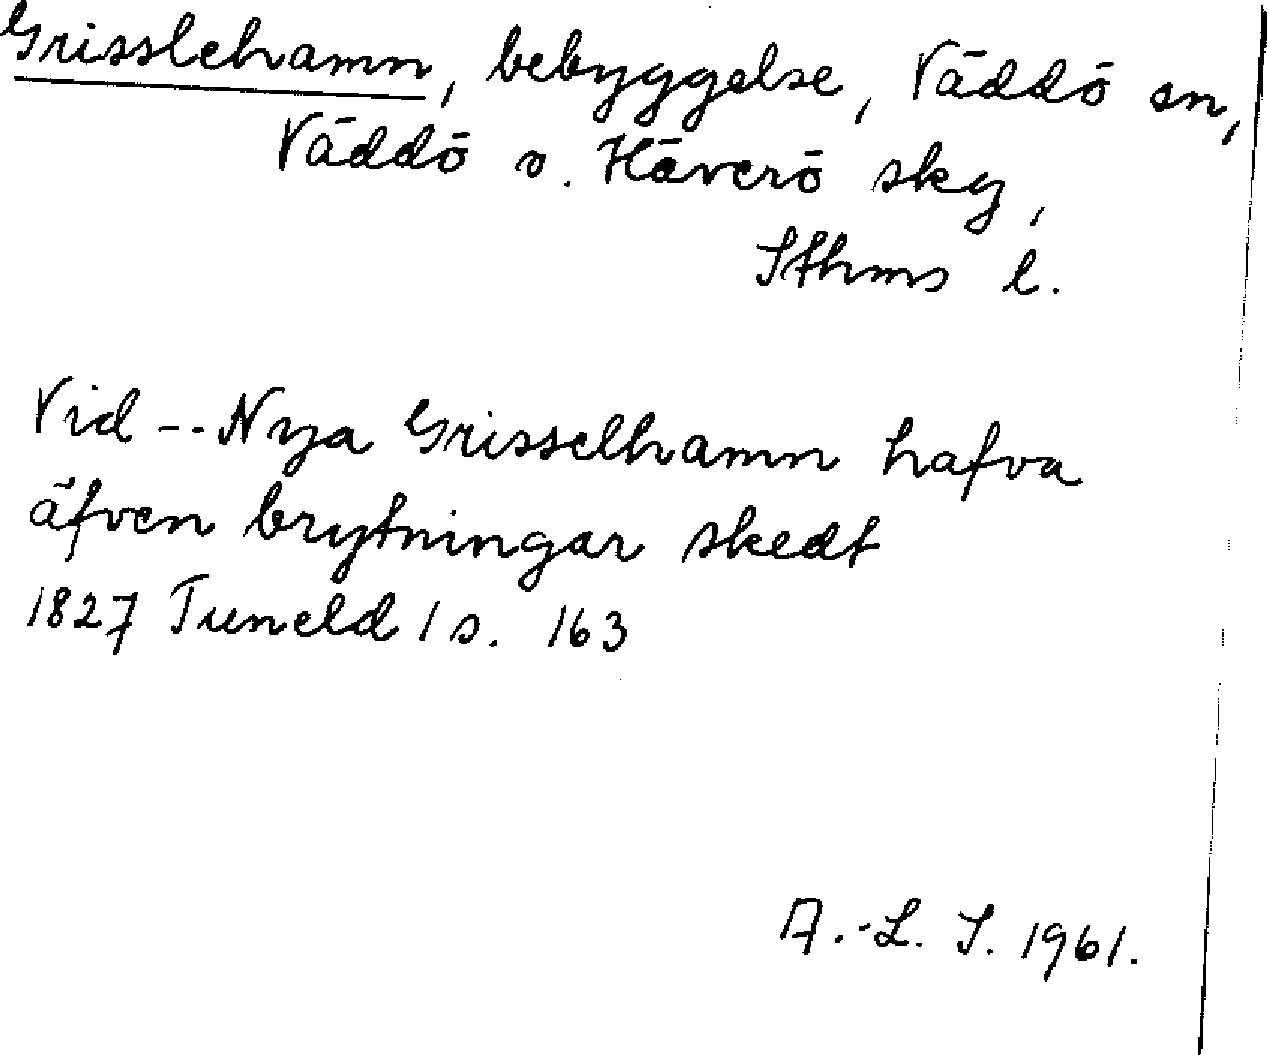 Grisslehamn, bebyggelse, Väddö sn,
Väddö o. Häverö skg,
Sthms l.
Vid -- Nya Grisselhamn hafva
äfven brytningar skedt
1827 Tuneld 1 s. 163
A.-L. S. 1961.